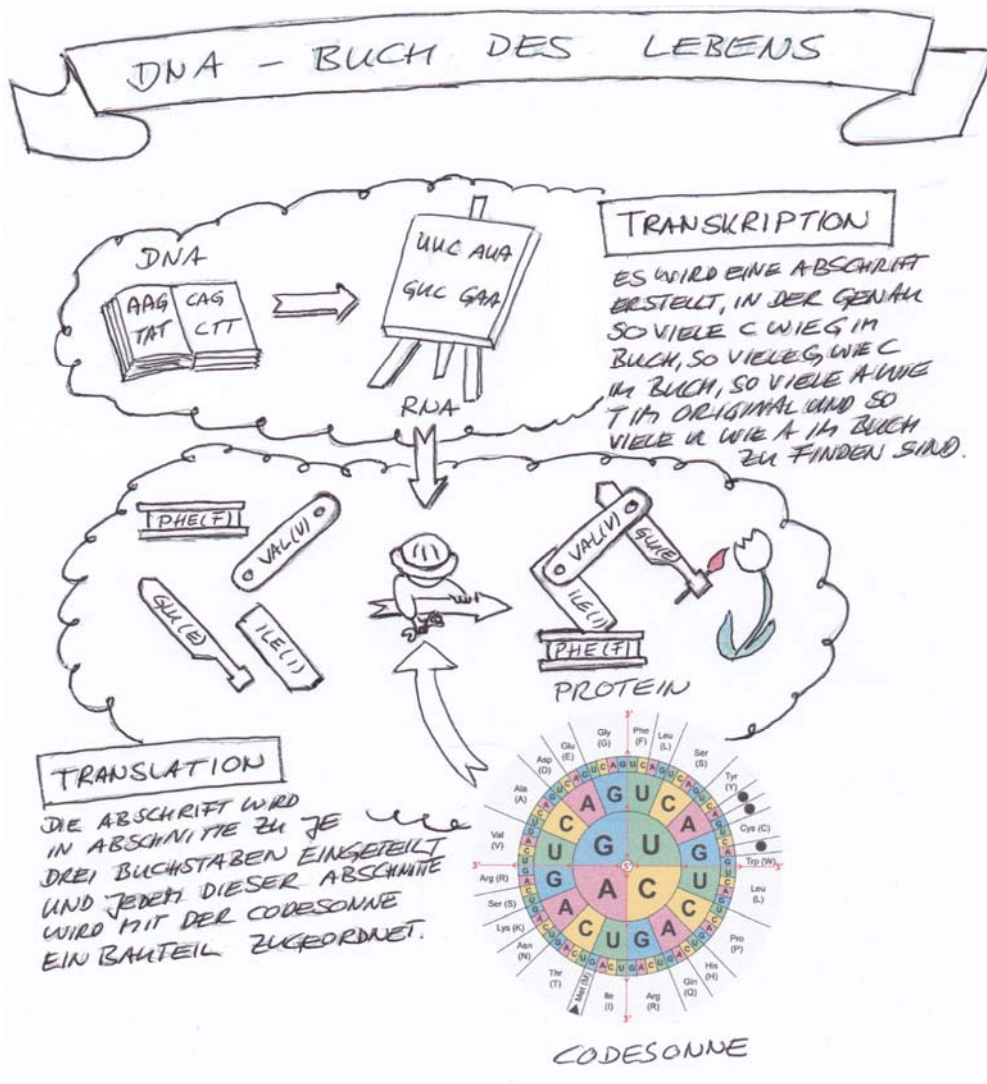 DNA – BUCH DES LEBENS
DNA
AAG CAG
TAT CTT
UUC AUA
GUC GAA
RNA
TRANSKRIPTION
ES WIRD EINE ABSCHRIFT
ERSTELLT, IN DER GENAU
SO VIELE C WIE G IM
BUCH, SO VIELE G, WIE C
IM BUCH, SO VIELE A WIE
T IM ORIGINAL UND SO
VIELE U WIE A IM BUCH
ZU FINDEN SIND.
PHE(F)
VAL(V)
GLU(E)
ILE(I)
VAL(V)
GLU(E)
ILE(I)
PHE(F)
PROTEIN
TRANSLATION
DIE ABSCHRIFT WIRD
IN ABSCHNITTE ZU JE
DREI BUCHSTABEN EINGETEILT
UND JEDEM DIESER ABSCHNITTE
WIRD MIT DER CODESONNE
EIN BAUTEIL ZUGEORDNET.
3'
Gly (G)
Phe (F)
Leu (L)
Ser (S)
Tyr (Y)
Cys (C)
Trp (W)
3'
Leu (L)
Pro (P)
His (H)
Gln (Q)
Arg (R)
3'
Ile (I)
Met (M)
Thr (T)
Asn (N)
Lys (K)
Ser (S)
Arg (R)
3'
Val (V)
Ala (A)
Asp (D)
Glu (E)
G U
A C
5'
U C A G
U C A G
U C A G
U C A G
CODESONNE